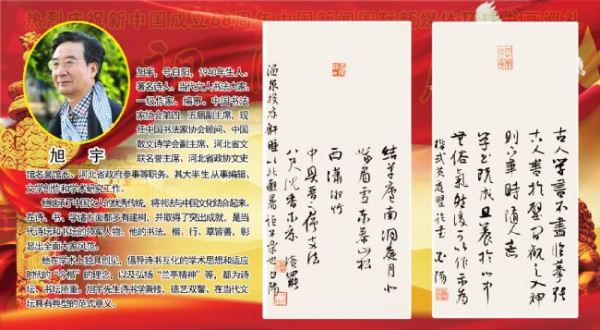 热烈庆祝新中国成立68周年中国新闻国际新媒体环球书画巡礼
旭宇,号白阳,1940年生人。
著名诗人、当代文人书法大家,
一级作家、编审。中国书法
家协会第四、五届副主席,现
任中国书法家协会顾问、中国
散文诗学会副主席、河北省文
联名誉主席、河北省政协文史
馆名誉馆长、河北省政府参事等职务。其大半生从事编辑、
文学创作和学术研究工作。
他继承了中国文人的优秀传统,将书法与中国文化结合起来。
在诗、书、学诸方面都多有建树,并取得了突出成就,是当
代诗坛和书坛的领军人物。他的书法,楷、行、草皆善,彰
显出全面大家风范。
他在学术上独具创见,倡导诗书互化的学术思想和适应
时代的“今楷”的理念,以及弘扬“兰亭精神”等,都为诗
坛、书坛所重。旭宇先生诗书学兼修,德艺双馨,在当代文
坛具有典型的范式意义。
旭 宇
古人学书不尽临摹张
古人书于壁间观之入神
则下笔时随人意
学书既成且养于心中
无俗气然后可以作示为
楷式
南洞庭月
眉雪东泰山松
西潇湘竹
八尺沉香木床